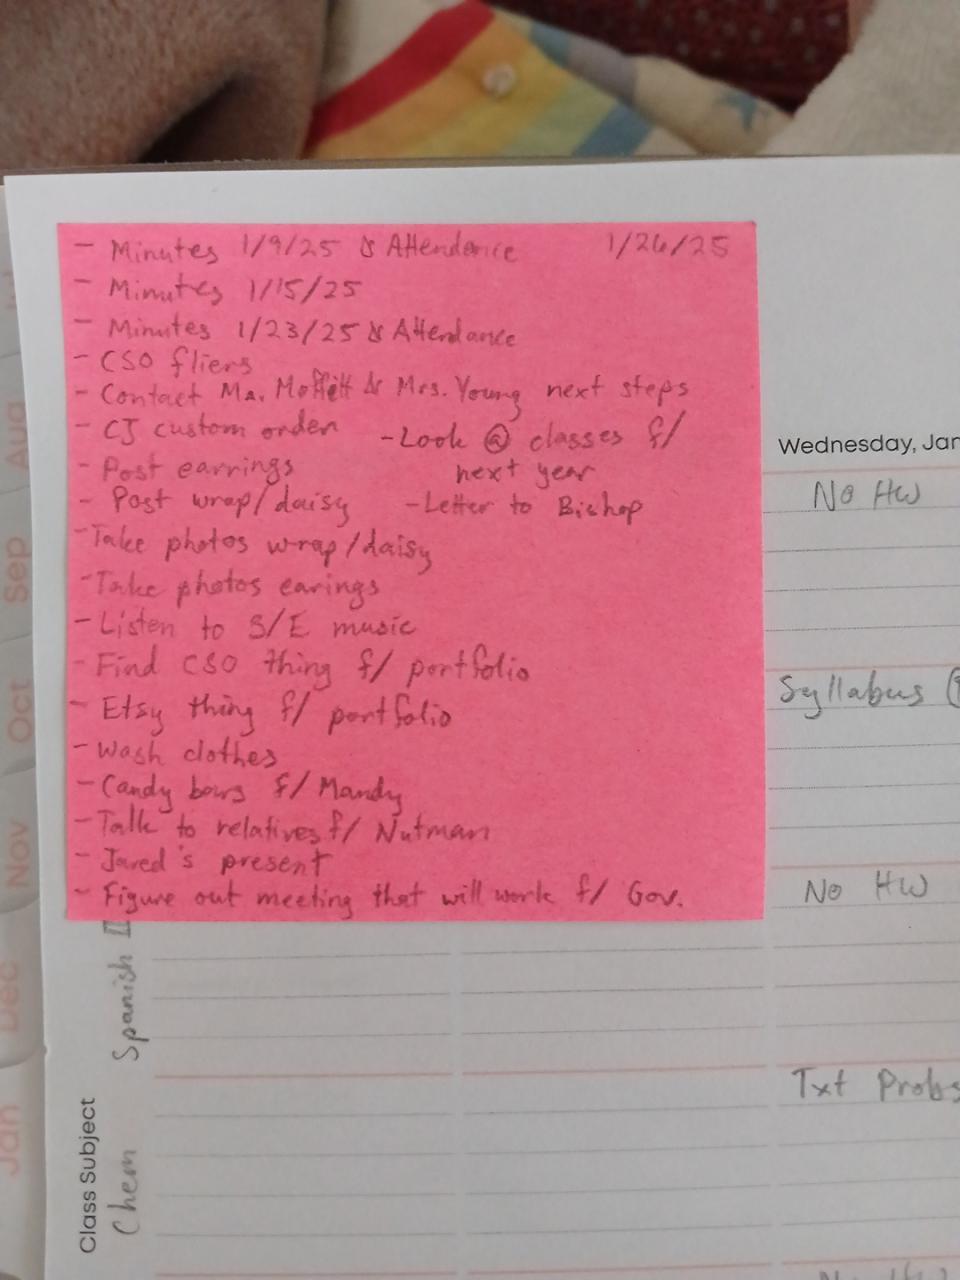 - Minutes 1/9/25 & Attendence 1/26/25
- Minutes 1/15/25
- Minutes 1/23/25 & Attendance
- CSO fliers
- Contact Ms. Moffett & Mrs. Young next steps
- CJ custom order
- Look @ classes f/
next year
- Post earrings
- Post wrap/daisy
- Letter to Bishop
- Take photos wrap/daisy
- Take photos earings
- Listen to S/E music
- Find CSO thing f/ portfolio
- Etsy thing f/ portfolio
- Wash clothes
- Candy bars f/ Mandy
- Talk to relatives f/ Nutman
- Jared's present
- Figure out meeting that will work f/ Gov.
Wednesday, Jan
No HW
Syllabus
No HW
Txt Probs
Spanish II
Class Subject
Chem
Aug
Sep
Oct
Nov
Dec
Jan